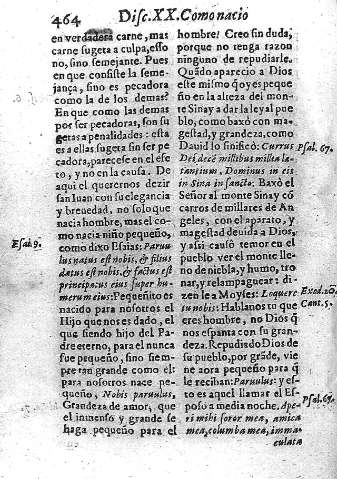 464 Disc. XX. Como nacio
en verdadera carne, mas
carne sugeta a culpa, esso
no, sino semejante. Pues
en que consiste la seme-
jança, sino es pecadora
como la de los demas?
En que como las demas
por ser pecadoras, son su
getas a penalidades: esta
es a ellas sugeta sin ser pe
cadora, parecese en el efe
to, y no en la causa. De
aqui el querernos dezir
san Iuan con su elegancia
y breuedad, no solo que
nacia hombre, mas el co-
mo nacia niño pequeño,
Esai. 9.
como dixo Esaias: Paruu
lus natus est nobis, & filius
datus est nobis, & factus est
principatus eius super hu-
merum eius: Pequeñito es
nacido para nosotros el
Hijo que nos es dado, el
que siendo hijo del Pa-
dre eterno, para el nunca
fue pequeño, sino siem-
pre tan grande como el:
para nosotros nace pe-
queño, Nobis paruulus,
Grandeza de amor, que
el inmenso y grande se
haga pequeño para el
hombre! Creo sin duda,
porque no tenga razon
ninguno de repudiarle.
Quãdo aparecio a Dios
este mismo q̃ oy es peque
ño en la alteza del mon-
te Sinay a dar la ley al pue
blo, como baxò con ma-
gestad, y grandeza, como
Dauid lo sinificò: Currus
Psal. 67.
Dei decẽ millibus multa la-
tantium, Dominus in eis
in Sina in sancto. Baxò el
Señor al monte Sinay cõ
carros de millares de An
geles, con el aparato, y
magestad deuida a Dios,
y assi causò temor en el
pueblo ver el monte lle-
no de niebla, y humo, tro
nar, y relampaguear: di-
zen le a Moyses: Loquere
Exod. 20.
tu nobis: Hablanos tu que
Cant. 5.
eres hombre, no Dios q̃
nos espanta con su gran-
deza. Repudiso Dios de
su pueblo, por grãde, vie
ne aora pequeño para q̃
le reciban: Paruulus: y es-
to es aquel llamar el Es-
Psal. 67.
poso a media noche. Ape-
ri mihi soror mea, amica
mea, columba mea, imma-
culata